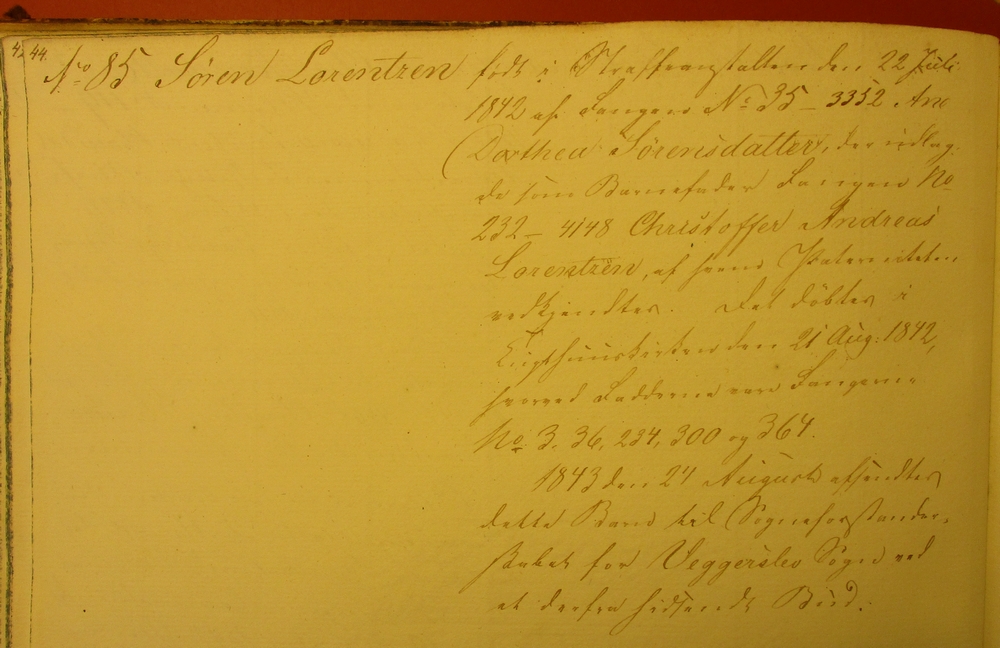 44.
No 85 Søren Lorentzen født i Straffeanstalten den 22 Juli
1842 af Fangen No 35 - 3352 Ane
Dorthea Sørensdatter, der udlag-
de som Barnefader Fangen No
232 - 4148 Christoffer Andreas
Lorentzen, af hvem Paterniteten
vedkjendtes. Det døbtes i
Tugthuuskirken den 21 Aug: 1842,
hvorved Fadderne vare Fangerne
No 3, 36, 234, 300 og 364.
1843 den 24 August afsendtes
dette Barn til Sogneforstander-
skabet for Veggerslev Sogn ved
et derfra hidsendt Bud.